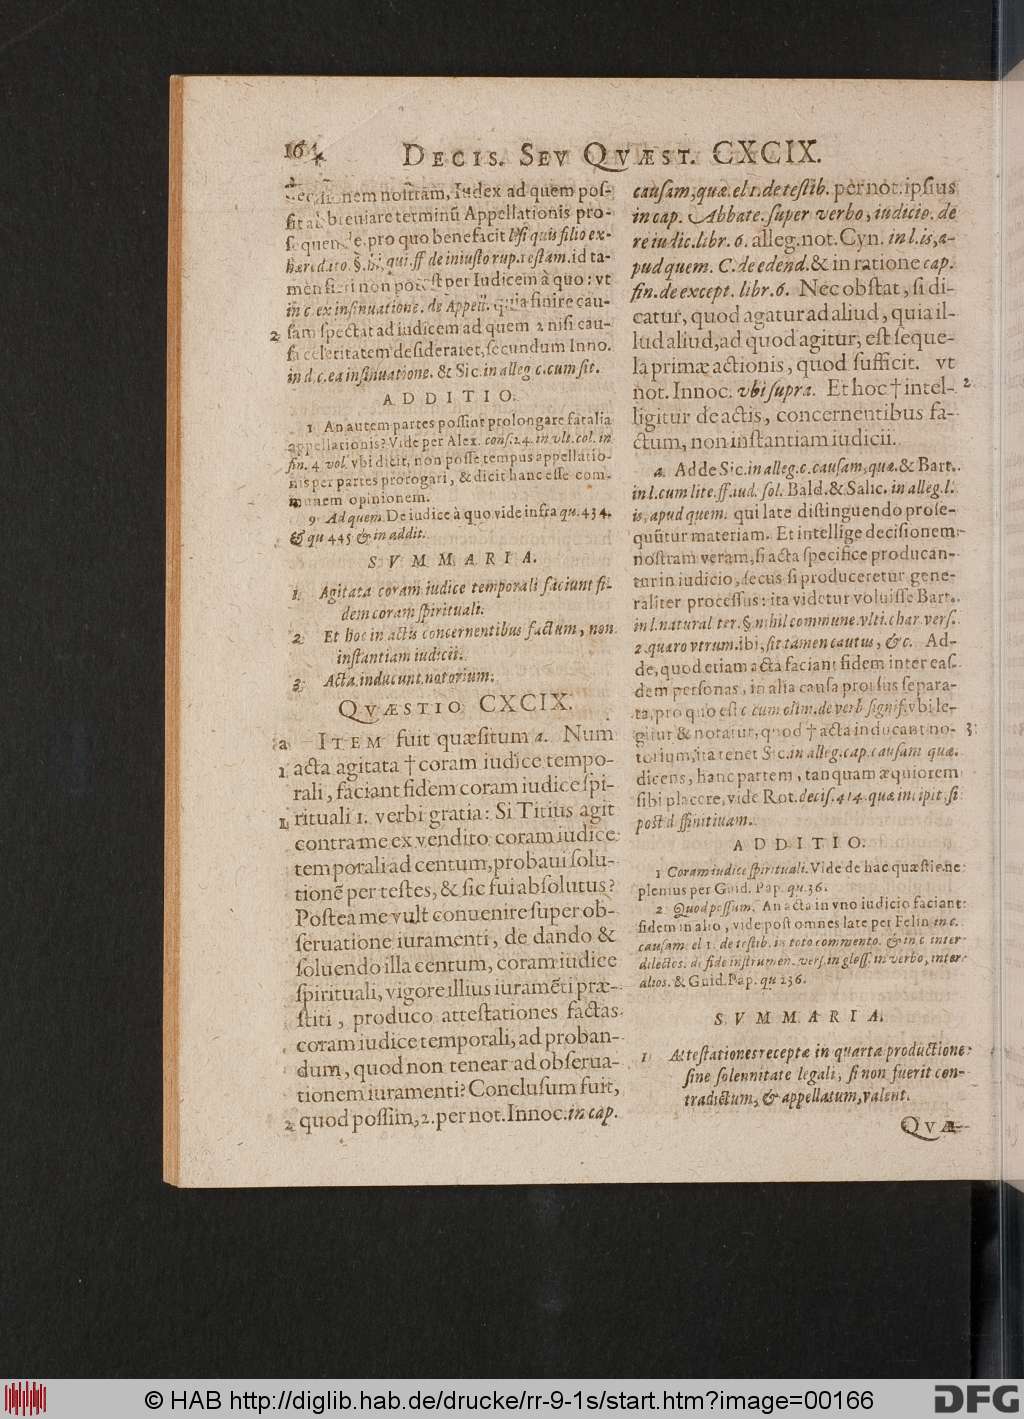 164
DECIS. SEV QVÆST. CXCIX.
nem nostram, Iudex ad quem pos-
sit abbreuiare terminũ Appellationis pro-
sequende, pro quo benefacit l. si quis filio ex-
hæredato. §. hi, qui. ff. de iniusto rup. testam. id ta-
men fieri non potest per Iudicem à quo: vt
in c. ex insinuatione. de Appell. quia finire cau-
2 sam spectat ad iudicem ad quem 2 nisi cau-
sa celeritatem desideraret, secundum Inno.
in d. c. ea insinuatione. & Sic. in alleg. c. cum sit.
ADDITIO.
1 An autem partes possint prolongare fatalia
appellationis? Vide per Alex. cons. 24. in vlt. col. in
fin. 4. vol. vbi dicit, non posse tempus appellatio-
nis per partes prorogari, & dicit hanc esse com-
munem opinionem.
9 Ad quem. De iudice à quo vide infra qu. 434.
& qu 445 & in addit.
SVMMARIA.
1. Agitata coram iudice temporali faciunt fi-
dem coram spirituali.
2. Et hoc in actis concernentibus factum, non
instantiam iudicii.
3. Acta inducunt notorium.
QVÆSTIO CXCIX.
a ITEM fuit quæsitum a. Num
1 acta agitata † coram iudice tempo-
rali, faciant fidem coram iudice spi-
1. rituali 1. verbi gratia: Si Titius agit
contra me ex vendito coram iudice
temporali ad centum, probaui solu-
tionẽ per testes, & sic fui absolutus?
Postea me vult conuenire super ob-
seruatione iuramenti, de dando &
soluendo illa centum, coram iudice
spirituali, vigore illius iuramẽti præ-
stiti, produco attestationes factas
coram iudice temporali, ad proban-
dum, quod non tenear ad obserua-
tionem iuramenti? Conclusum fuit,
2 quod possim, 2. per not. Innoc. in cap.
causam, quæ. el 1. de testib. per not. ipsius
in cap. Abbate. super verbo, iudicio. de
re iudic. libr. 6. alleg. not. Cyn. in l. is, a-
pud quem. C. de edend. & in ratione cap.
fin. de except. libr. 6. Nec obstat, si di-
catur, quod agatur ad aliud, quia il-
lud aliud, ad quod agitur, est seque-
la primæ actionis, quod sufficit. vt
not. Innoc. vbi supra. Et hoc † intel- 2
ligitur de actis, concernentibus fa-
ctum, non instantiam iudicii.
a. Adde Sic. in alleg. c. causam, quæ. & Bart.
in l. cum lite. ff. iud. sol. Bald. & Salic. in alleg. l.
is, apud quem. qui late distinguendo prose-
quũtur materiam. Et intellige decisionem
nostram veram, si acta specifice producan-
tur in iudicio, secus si produceretur gene-
raliter processus: ita videtur voluisse Bart.
in l. naturaliter. §. nihil commune. vlti. char. vers.
2. quæro vtrum. ibi, sit tamen cautus, &c. Ad-
de, quod etiam acta faciant fidem inter eas-
dem personas, in alia causa prorsus separa-
ta, pro quo est c. cum olim. de verb. signif. vbi le-
gitur & notatur, quod † acta inducant no- 3:
torium, ita tenet Sic. in alleg. cap. causam quæ.
dicens, hanc partem, tanquam æquiorem
sibi placere, vide Rot. decis. 414. quæ incipit, si
post diffinitiuam.
ADDITIO.
1 Coram iudice spirituali. Vide de hac quæstione
plenius per Guid. Pap. qu. 36.
2 Quod possum. An acta in vno iudicio faciant
fidem in alio, vide post omnes late per Felin. in c.
causam. el 1. de testib. in toto commento. & in c. inter
dilectos. de fide instrumen. vers. in gloss. in verbo, inter
alios. & Guid. Pap. qu 236.
SVMMARIA.
1 Attestationes receptæ in quarta productione
sine solennitate legali, si non fuerit con-
tradictum, & appellatum, valent.
QVÆ-
© HAB http://diglib.hab.de/drucke/rr-9-1s/start.htm?image=00166
DFG